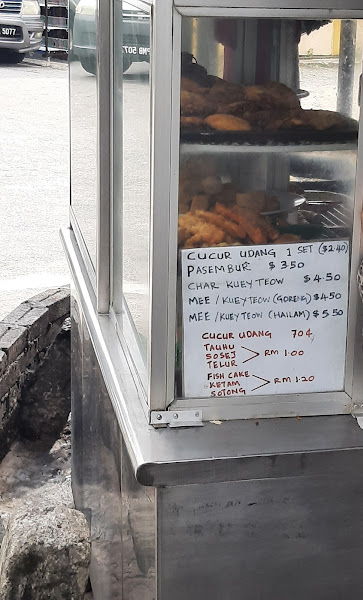 5077
5077
CUCUR UDANG 1 SET ($2.40)
PASEMBUR $ 3.50
CHAR KUEYTEOW $ 4.50
MEE / KUEYTEOW (GORENG) $4.50
MEE / KUEYTEOW (HAILAM) $ 5.50
CUCUR UDANG 70¢
TAUHU
SOSEJ > RM 1.00
TELUR
FISH CAKE
KETAM > RM 1.20
SOTONG